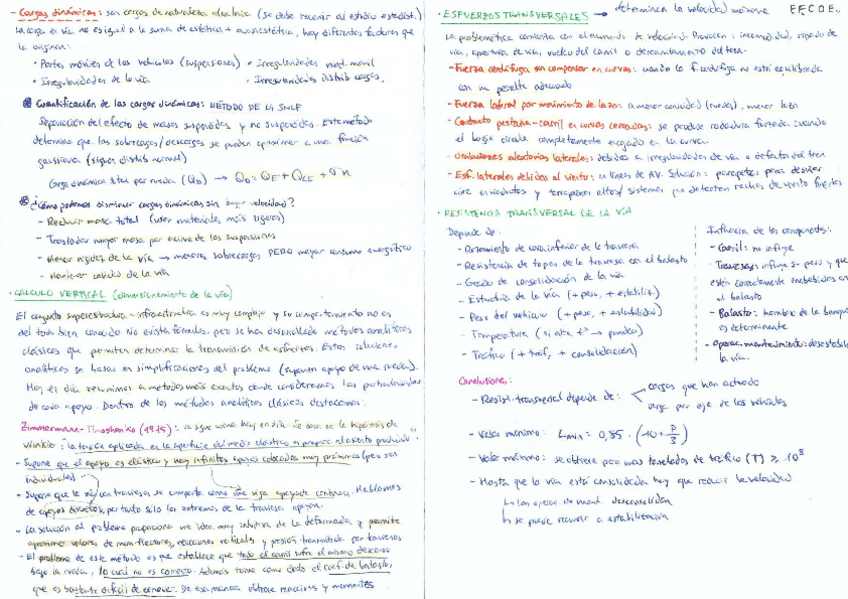 - Cargas dinámicas: son cargas de naturaleza aleatoria (se debe recurrir al estudio estadíst.)
La carga en vía no es igual a la suma de estática + cuasiestática, hay diferentes factores que
la originan:
· Partes móviles de los vehículos (suspensiones) · Irregularidades mat. móvil
· Irregularidades de la vía · Irregularidades distrib cargas
Cuantificación de las cargas dinámicas: MÉTODO DE LA SNCF
Separación del efecto de masas suspendidas y no suspendidas. Este método
determina que las sobrecargas/descargas se pueden aproximar a una función
gaussiana (siguen distrib normal)
Carga dinámica total por rueda (QD) →
¿Cómo podemos disminuir cargas dinámicas sin bajar velocidad?
- Reducir masa total (usar materiales más ligeros)
- Trasladar mayor masa por encima de las suspensiones
- Menor rigidez de la vía → menores sobrecargas PERO mayor consumo energético
- Mantener calidad de la vía
· CALCULO VERTICAL (dimensionamiento de la vía)
El conjunto superestructura - infraestructura es muy complejo y su comportamiento no es
del todo bien conocido. No existía fórmulas, pero se han desarrollado métodos analíticos
clásicos que permiten determinar la transmisión de esfuerzos. Estas soluciones
analíticas se basan en simplificaciones del problema (suponen apoyo de una rueda).
Hoy en día recurrimos a métodos más exactos donde consideramos las particularidades
de cada apoyo. Dentro de los métodos analíticos clásicos destacamos:
Zimmermann - Timoshenko (1915): se sigue usando hoy en día. Se basa en la hipótesis de
Winkler:
- Supone que el apoyo es elástico y hay infinitos apoyos colocados muy próximos (pero son
individuales)
- Supone que la vía sin traviesa se comporta como una viga apoyada continua. Hablamos
de apoyos discretos, por tanto sólo los extremos de la traviesa apoyan.
- La solución al problema proporciona una idea muy intuitiva de la deformada y permite
aproximar valores de mom flectores, reacciones verticales y presión transmitida por traviesas
- El problema de este método es que establece que todo el carril sufre el mismo descenso
bajo la rueda, lo cual no es correcto. Además toma como dato el coef. de balasto,
que es bastante difícil de conocer. De esa manera obtiene reacciones y momentos
· ESFUERZOS TRANSVERSALES → determinan la velocidad máxima
La problemática aumenta con el aumento de velocidad. Provocan: incomodidad, ripado de
vía, apertura de vía, vuelco del carril o descarrilamiento del tren.
- Fuerza centrífuga sin compensar en curvas: cuando la f. centrífuga no está equilibrada
con un peralte adecuado
- Fuerza lateral por movimiento de lazo: a menor conicidad (ruedas), menor lazo
- Contacto pestaña-carril en curvas cerradas: se produce rodadura forzada cuando
el bogie circula completamente encajado en la curva.
- Oscilaciones aleatorias laterales: debidas a irregularidades de vía o defectos del tren
- Esf. laterales debidos al viento: en líneas de AV. Solución: parapetos para desviar
aire en viaductos y terraplenes altos/ sistemas que detecten rachas de viento fuertes
· RESISTENCIA TRANSVERSAL DE LA VÍA
Depende de:
- Rozamiento de cara inferior de la traviesa
- Resistencia de topes de la traviesa con el balasto
- Grado de consolidación de la vía
- Estructura de la vía (+ peso, + estabilit)
- Peso del vehículo (+ peso, + estabilidad)
- Temperatura (si alta tª → pandeo)
- Tráfico (+ tráf, + consolidación)
Influencia de los componentes:
- Carril: no influye
- Traviesas: influye su peso y que
estén correctamente embebidas en
el balasto
- Balasto: hombro de la banqueta
es determinante
- Operac. mantenimiento: desestabiliza
la vía.
Conclusiones:
- Resist. transversal depende de: cargas que han actuado
carga por eje de los vehículos
- Valor mínimo: Lmin = 0,85 · (10 + P/3)
- Valor máximo: se obtiene para unas toneladas de tráfico (T) ≥ 10⁸
- Hasta que la vía está consolidada hay que reducir la velocidad
↳ las operac de mant. desconsolidan
↳ se puede recurrir a estabilización